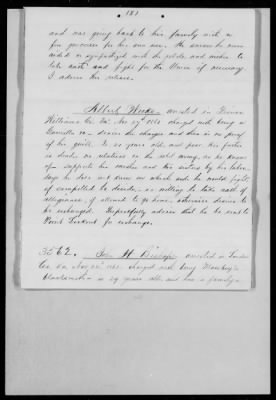 181
and was going back to his family with a
few groceries for his own use. He swears he never
aided or sympathized with the rebels, and wishes to
take oath and fight for the Union if necessary.
I advise his release.
Albert Weeks arrested in Prince
William Co. Va. Nov 27th 1863 charged with being a
Guerrilla &c - denies the charges and there is no proof
of his guilt. Is 20 years old, and poor. His father
is dead, no relatives in the rebel army, as he knows
of, supports his mother and two sisters by his labor,
says he does not know on which side he would fight,
if compelled to decide, is willing to take oath of
allegiance, if allowed to go home, otherwise desires to
be exchanged. Respectfully advise that he be sent to
Point Lookout for exchange.
3562. Geo. H. Bishop, arrested in Loudon
Co. Va. 1863. charged with being Mosby's
blacksmith is 29 years old, and has a family